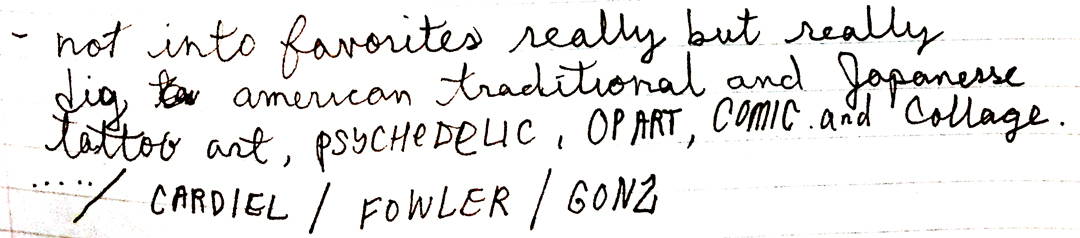 - not into favorites really but really
dig american traditional and Japanesse
tattoo art, PSYCHEDELIC, OP ART, COMIC. and Collage.
...../ CARDIEL / FOWLER / GONZ